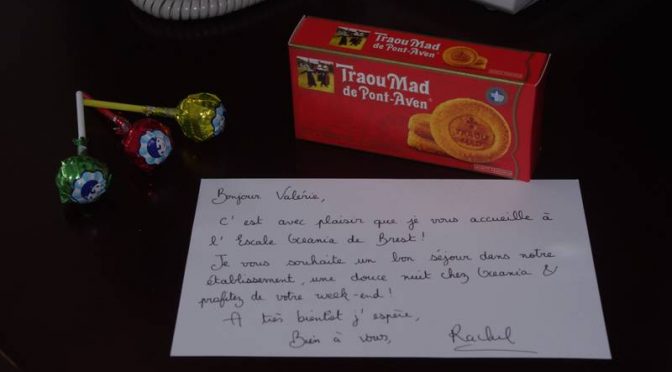 Traou Mad
de Pont-Aven
Traou Mad
de Pont-Aven
TRAOU
MAD
Bonjour Valérie,
C'est avec plaisir que je vous accueille à
l'Escale Oceania de Brest !
Je vous souhaite un bon séjour dans notre
établissement, une douce nuit chez Oceania &
profitez de votre week-end !
A très bientot j'espère,
Bien à vous,
Rachel